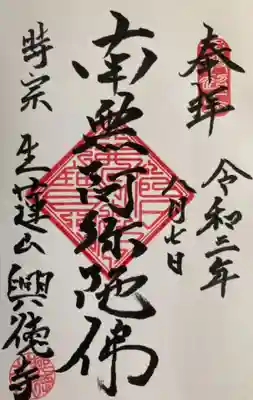 奉拝
令和二年
八月七日
南無阿弥陀佛
時宗
生蓮山
興徳寺